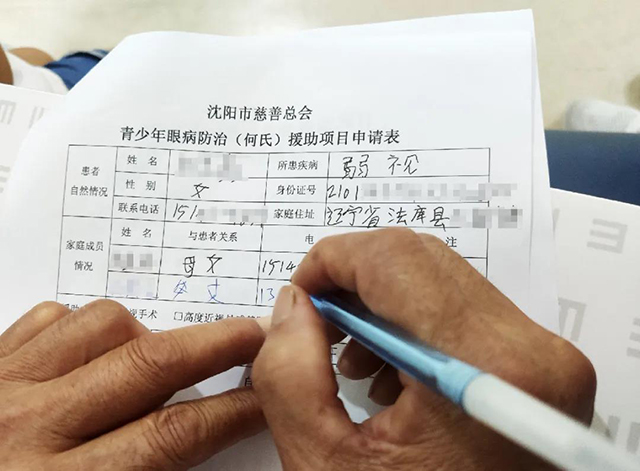 沈阳市慈善总会
青少年眼病防治（何氏）援助项目申请表
患者自然情况 姓 名 所患疾病 弱视
性 别 女 身份证号 2101
联系电话 151 家庭住址 辽宁省法库县
家庭成员情况 姓 名 与患者关系 电 注
母女 1514
13
手术 □高度近视